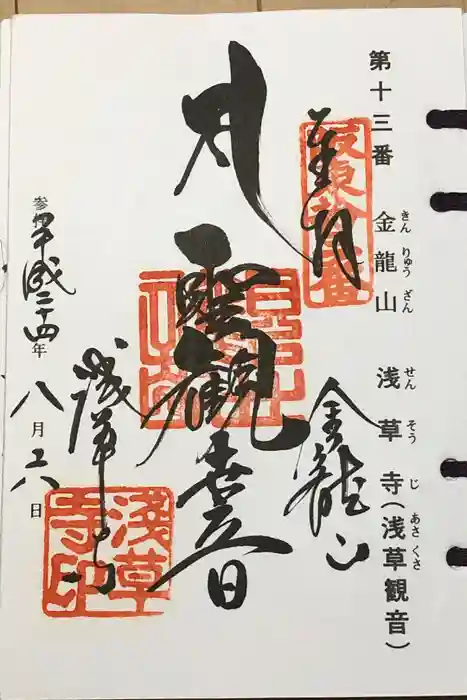 第十三番 金龍山 浅草寺(浅草観音)
きん りゅう ざん せん そう じ あさ くさ
坂東拾三番
奉拝
金龍山
聖観世音
浅草寺
淺草寺印
参拝 平成二十四年 八月 日